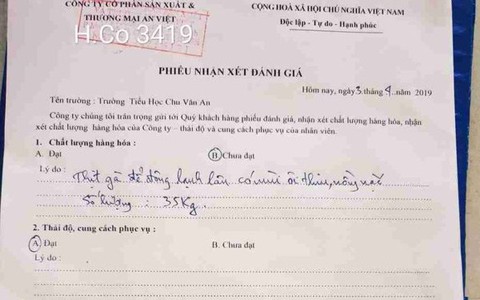 CÔNG TY CỔ PHẦN SẢN XUẤT &
THƯƠNG MẠI AN VIỆT
H.Co 3419
CỘNG HOÀ XÃ HỘI CHỦ NGHĨA VIỆT NAM
Độc lập - Tự do - Hạnh phúc
PHIẾU NHẬN XÉT ĐÁNH GIÁ
Hôm nay, ngày 3 tháng 4 năm 2019
Tên trường : Trường Tiểu Học Chu Văn An
Công ty chúng tôi trân trọng gửi tới Quý khách hàng phiếu đánh giá, nhận xét chất lượng hàng hóa, nhận
xét chất lượng hàng hóa của Công ty – thái độ và cung cách phục vụ của nhân viên.
1. Chất lượng hàng hóa :
A. Đạt B. Chưa đạt
Lý do : Thịt gà để đông lạnh lâu có mùi ôi thiu, nồng nặc
Số lượng : 35Kg.
2. Thái độ, cung cách phục vụ :
A. Đạt B. Chưa đạt
Lý do :